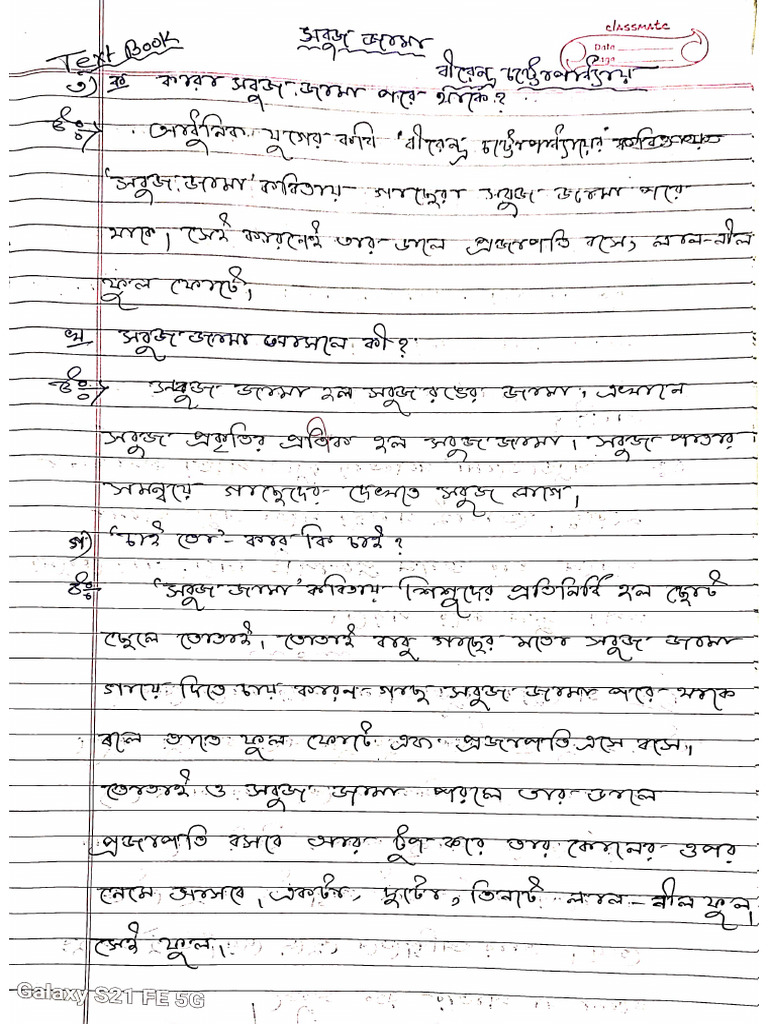 classmate
Date
Page
Text Book
সবুজ জামা
বীরেন্দ্র চট্টোপাধ্যায়
৩) ক কারা সবুজ জামা পরে থাকে?
উঃ আধুনিক যুগের কবি 'বীরেন্দ্র চট্টোপাধ্যায়ের
'সবুজ জামা' কবিতায় গাছেরা সবুজ জামা পরে
থাকে। সেই কারনেই তার ডালে প্রজাপতি বসে, লাল-নীল
ফুল ফোটে।
খ সবুজ জামা আসলে কী?
উঃ সবুজ জামা হল সবুজ রঙের জামা, এখানে
সবুজ প্রকৃতির প্রতিক হল সবুজ জামা। সবুজ পাতার
সমন্বয়ে গাছেদের দেখতে সবুজ লাগে।
গ) 'চাই তো'- কার কি চাই?
উঃ 'সবুজ জামা' কবিতায় শিশুদের প্রতিনিধি হল ছোট
ছেলে তোতাই। তোতাই বাবু গাছের মতো সবুজ জামা
গায়ে দিতে চায় কারন গাছ সবুজ জামা পরে থাকে
বলে তাতে ফুল ফোটে এবং প্রজাপতি এসে বসে।
তোতাই ও সবুজ জামা পরলে তার ডালে
প্রজাপতি বসবে আর টুপ করে তার কোলের ওপর
নেমে আসবে। একটা, দুটো, তিনটে লাল-নীল ফুল,
সেই ফুল।
Galaxy S21 FE 5G